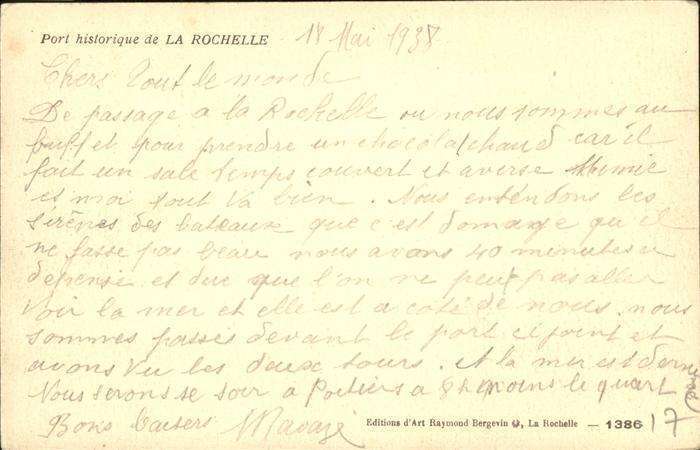 Port historique de LA ROCHELLE 18 Mai 1938
Chers Tout le monde
De passage a la Rochelle ou nous sommes au
buffet pour prendre un chocolat chaud car il
fait un sale temps couvert et averse Mimie
et moi tout va bien. Nous entendons les
sirènes des bateaux que c'est domage qu'il
ne fasse pas beau nous avons 40 minutes a
dépensé et dire que l'on ne peut pas aller
voir la mer et elle est a coté de nous. nous
sommes passés devant le port ci joint et
avons vu les deux tours. la mer est
Nous serons se soir a Poitiers a 8h moins le quart
Bons baisers
Editions d'Art Raymond Bergevin, La Rochelle — 1386
17